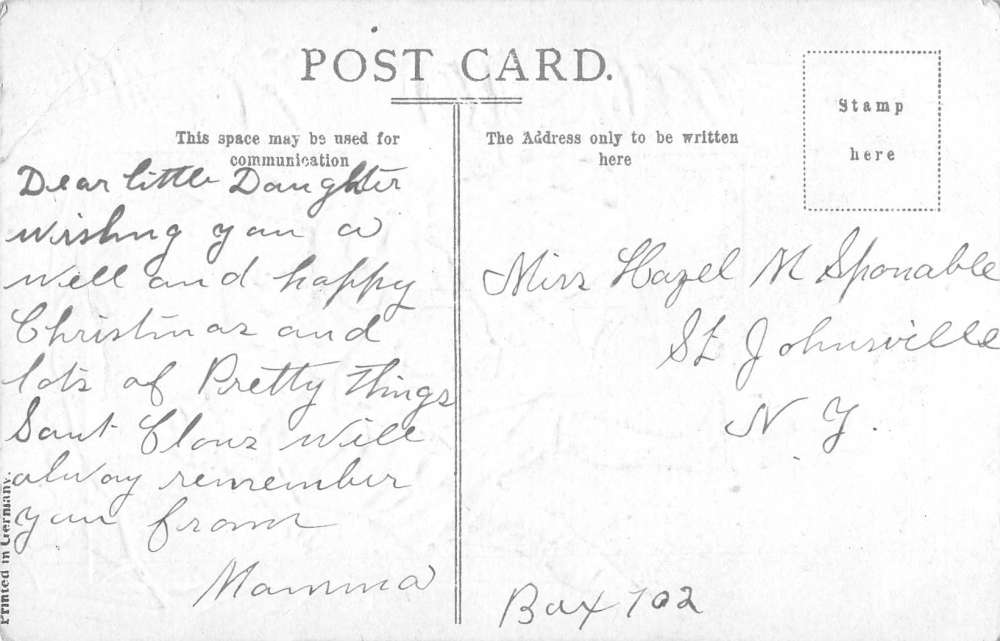 POST CARD.
This space may be used for
communication
The Address only to be written
here
Stamp
here
Dear little Daughter
wishing you a
well and happy
Christmas and
lots of Pretty things
Sant Claus will
alway remember
you from
Mamma
Miss Hazel M Sponable
St Johnsville
N. Y.
Box 702
Printed in Germany.